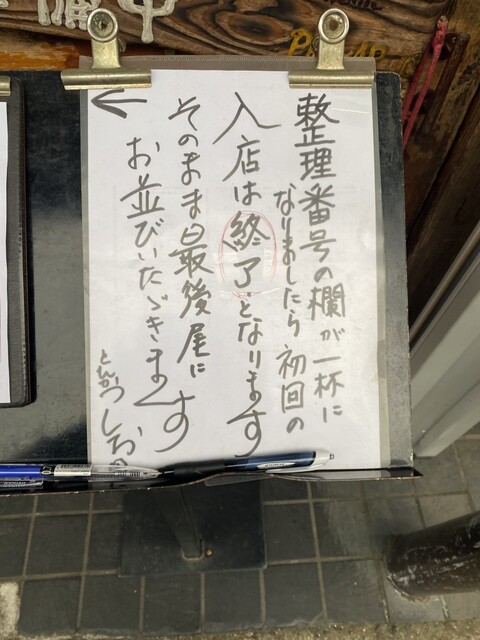 整理番号の欄が一杯に
なりましたら初回の
入店は終了となります
そのまま最後尾に
お並びいただきます
とんかつしお田
備中